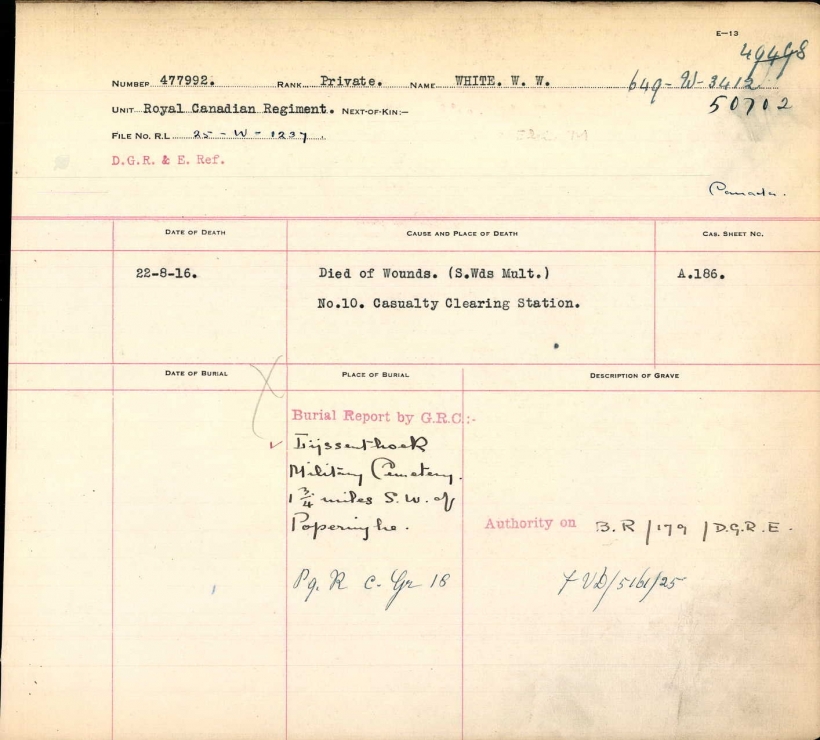 E-13
49448
NUMBER 477992. RANK Private. NAME WHITE. W. W. 649-W-3412
50702
UNIT Royal Canadian Regiment. NEXT-OF-KIN:-
FILE NO. R.L. 25-W-1237.
D.G.R. & E. Ref.
Canada.
DATE OF DEATH CAUSE AND PLACE OF DEATH CAS. SHEET NO.
22-8-16. Died of Wounds. (S.Wds Mult.) A.186.
No.10. Casualty Clearing Station.
DATE OF BURIAL PLACE OF BURIAL DESCRIPTION OF GRAVE
Burial Report by G.R.C.:-
Lijssenthoek
Military Cemetery.
1 3/4 miles S.W. of
Poperinghe.
Authority on B.R/179/D.G.R.E.
Gr 18